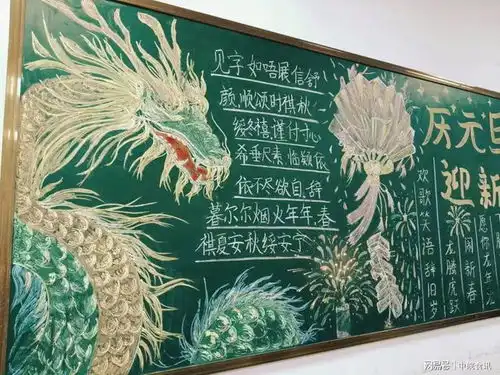 见字如唔展信舒
颜顺颂时祺秋
绥冬禧谨付寸心
希垂尺素临颖依
依不尽欲自辞
暮尔尔烟火年年春
祺夏安秋绥安宁
庆元旦
迎新
欢歌笑语辞旧岁
龙腾虎跃
闹新春
愿你龙年
网易号